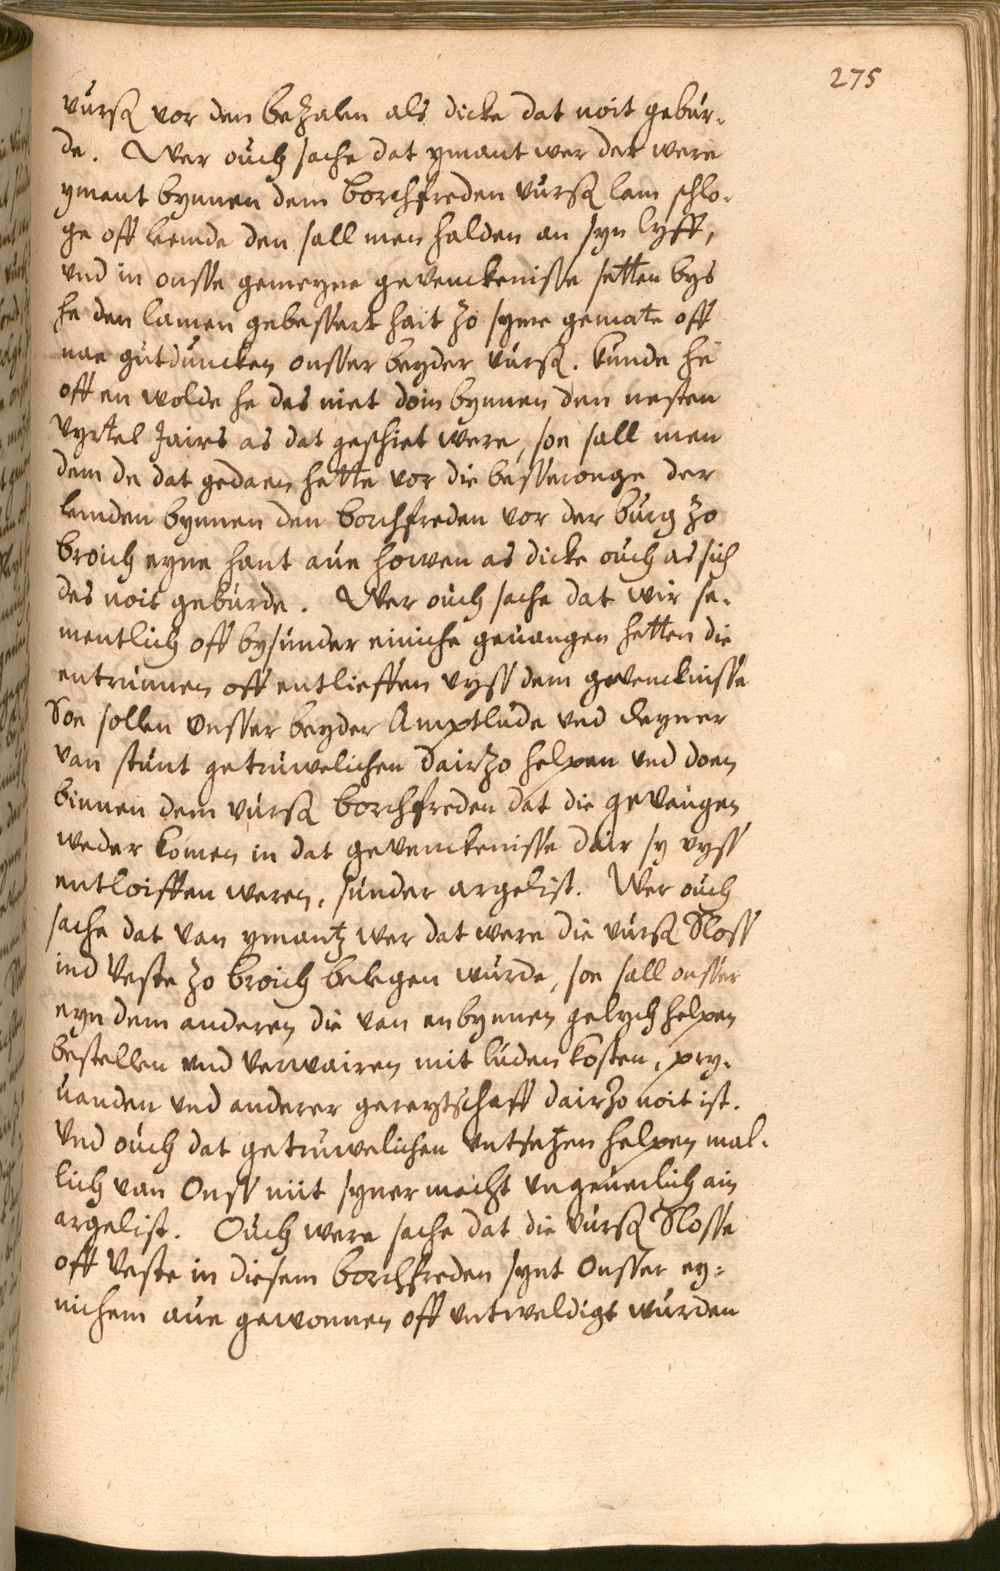 275
vursß vor den bezalen als dicke dat noit gebur-
de. Wer ouch sache dat ymant wer der were
yment bynnen dem borchfreden vursß lam schlo-
ge off lemde den sall men halden an syn lyff,
vnd in onsse gemeyne gevenckenisse setten bys
he den lamen gebessert hait zo syme gemate off
nae gutduncken onsser beyder vursß. kunde he
off en wolde he des niet doin bynnen den nesten
vyrtel Jairs as dat geschiet were, soe sall men
dem de dat gedaen hette vor die besseronge der
lemden bynnen den borchfreden vor der burg zo
broich eyne hant aue howen as dicke ouch as sich
des noit geburde. Wer ouch sache dat wir sa-
mentlich off bysunder einiche geuangen hetten die
entrunnen off entlieffen vyss dem gevencknisse
Soe sollen onsser beyder Amptlude vnd deyner
van stunt getruwelichen dairzo helpen vnd doen
binnen dem vursß borchfreden dat die gevangen
weder komen in dat gevenckenisse dair sy vyss
entloiffen weren, sunder argelist. Wer ouch
sache dat van ymantz wer dat were die vursß Sloss
ind Veste zo broich belegen wurde, soe sall onsser
eyn dem anderen die van enbynnen gelych helpen
bestellen vnd verwairen mit luden kosten, pro-
uanden vnd anderer gereytschaff dairzo noit ist.
Vnd ouch dat getruwelichen entsetzen helpen mal-
lich van Onss mit syner macht vngeuerlich ain
argelist. Ouch were sache dat die vursß Slosse
off Veste in diesem borchfreden synt Onsser ey-
nichem aue gewonnen off entweldigt wurden